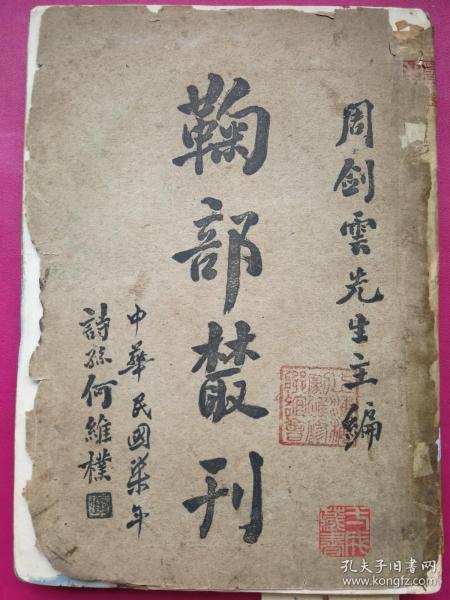 周劍雲先生主編
鞠部叢刊
中華民國柒年
詩孫何維樸
孔夫子旧书网
www.kongfz.com